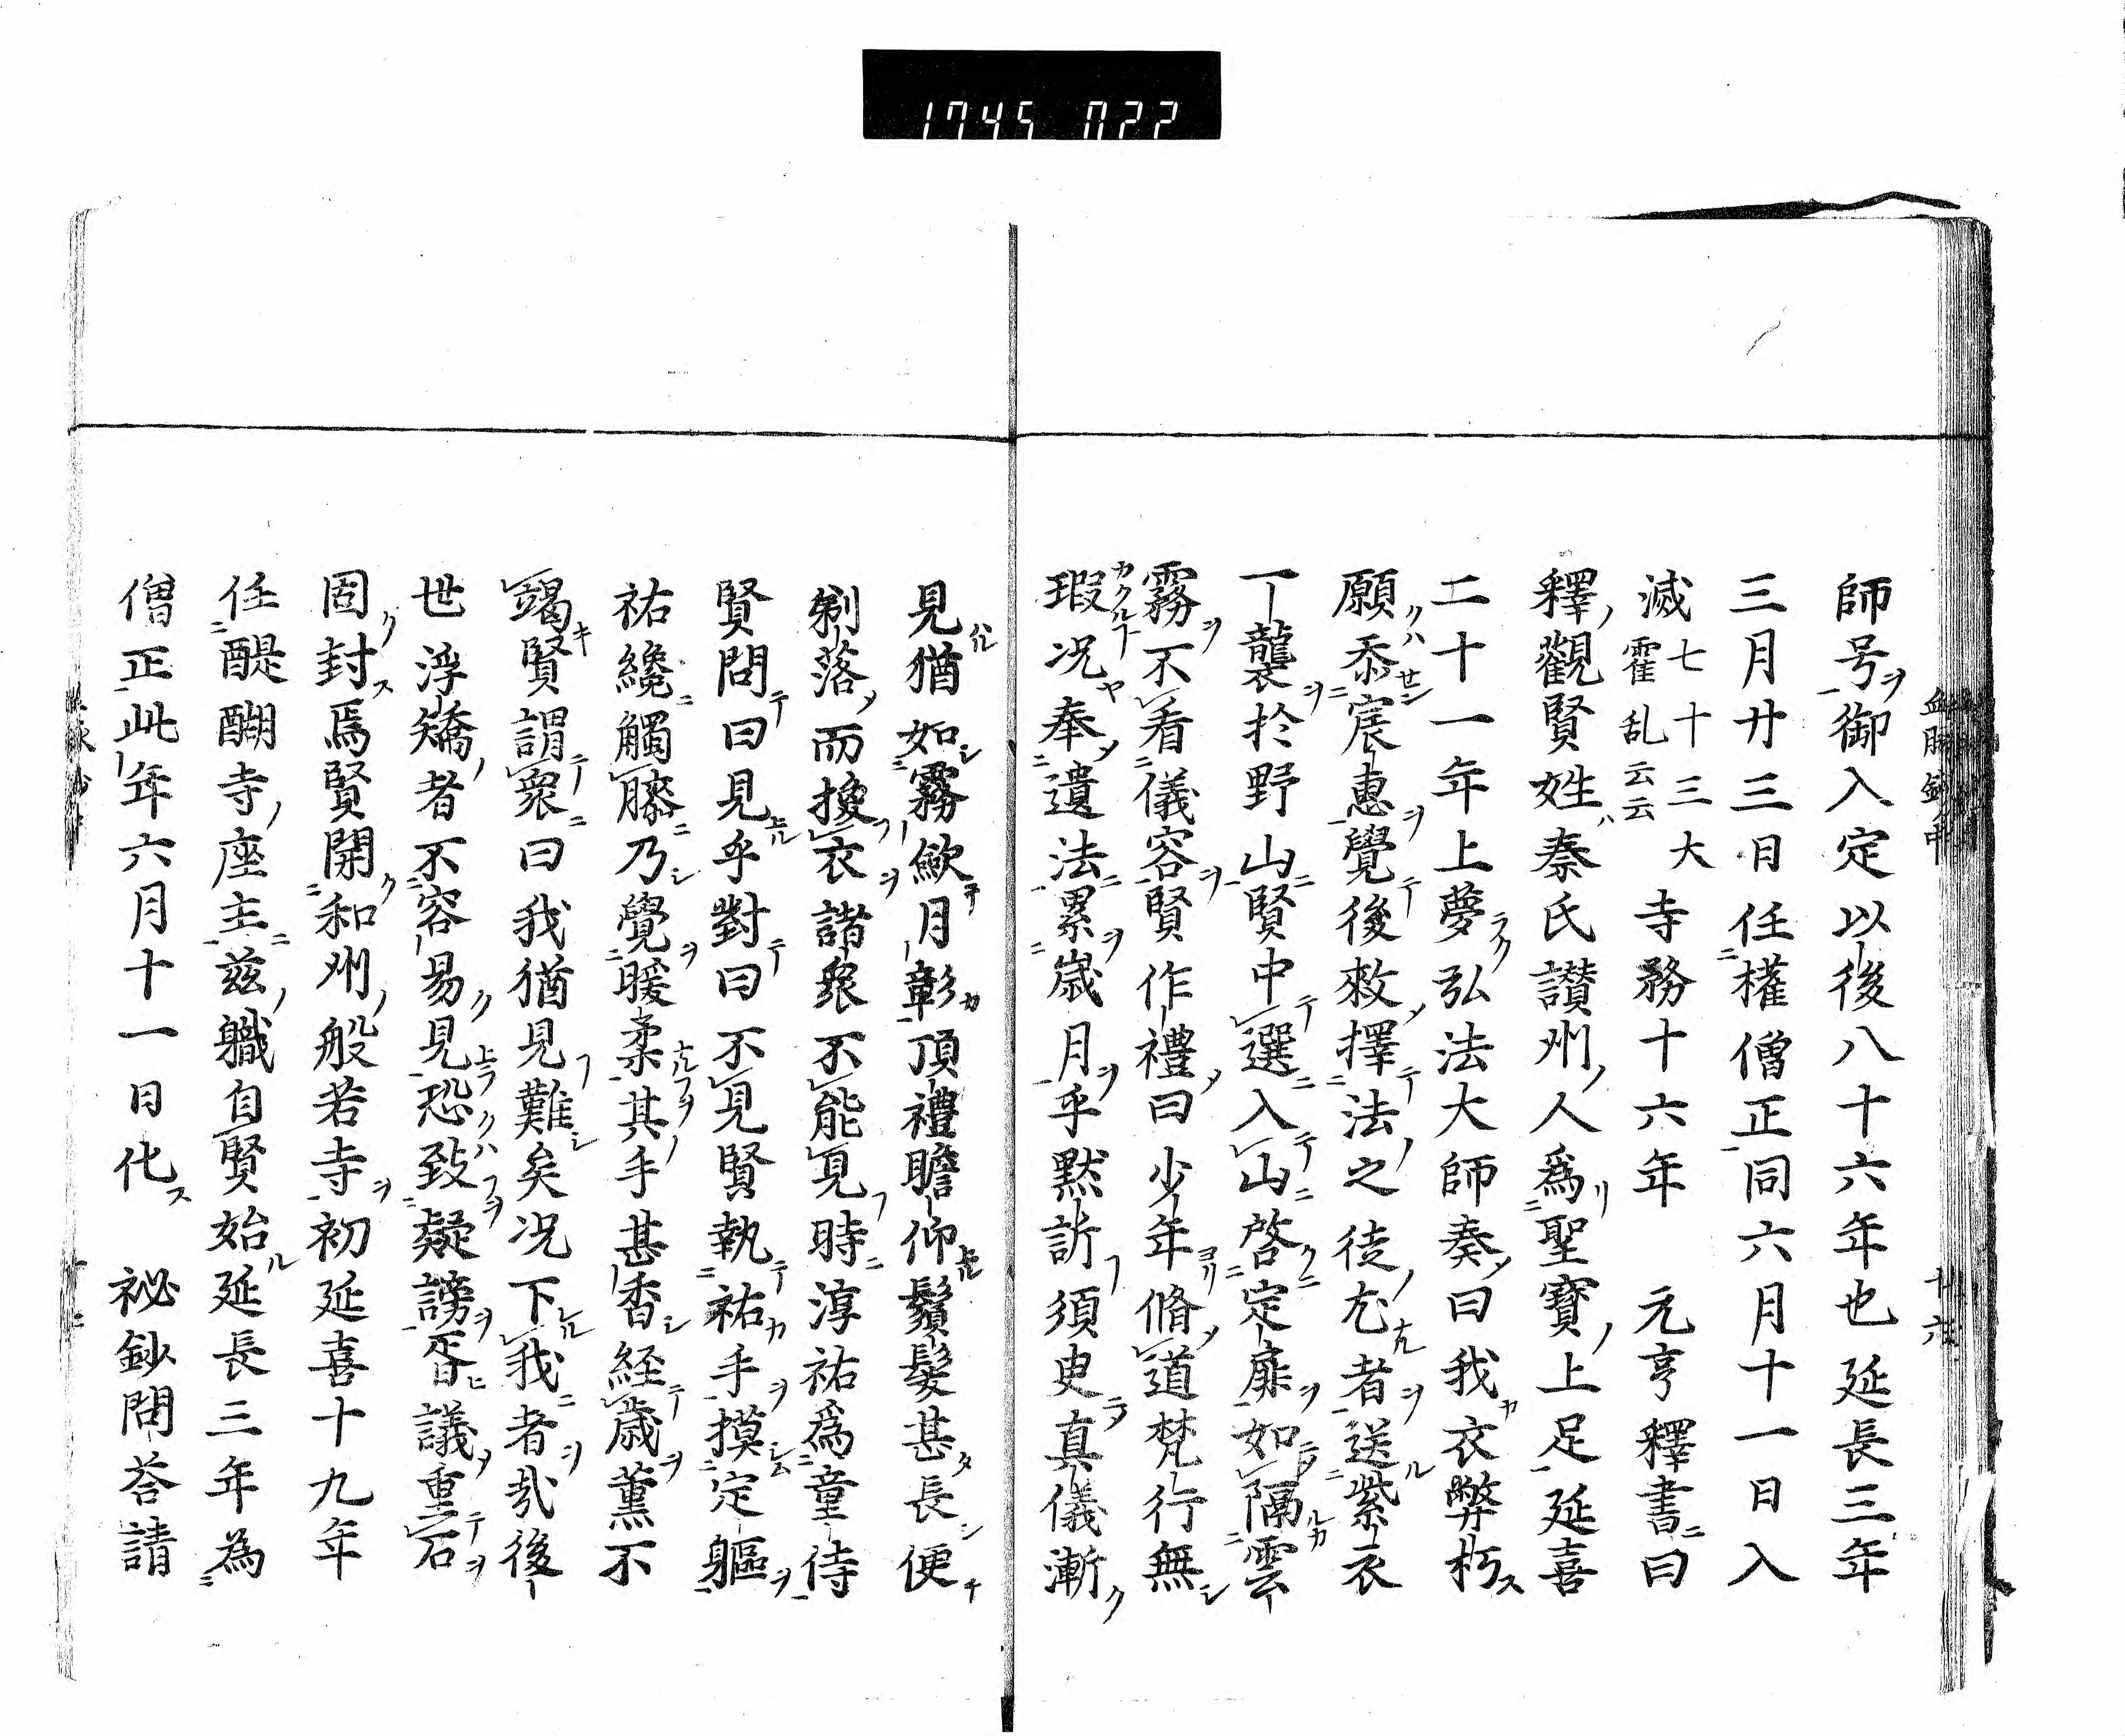 1745 022
師号御入定以後八十六年也延長三年
三月廿三日任權僧正同六月十一日入
滅七十三大霍乱云云寺務十六年 元亨釋書曰
釋觀賢姓秦氏讃州人爲聖寶上足延喜
二十一年上夢弘法大師奏曰我衣弊朽
願忝宸惠覺後敕擇法之徒尤者送紫衣
一襲於野山賢中選入山啓定扉如隔雲
霧不看儀容賢作禮曰少年脩道梵行無
瑕况奉遺法累歳月乎黙訴須臾真儀漸
見猶如霧歛月彰頂禮瞻仰鬚髮甚長便
剃落而換衣諸衆不能見時淳祐爲童侍
賢問曰見乎對曰不見賢執祐手摸定軀
祐纔觸膝乃覺暖柔其手甚香經歳薫不
竭賢謂衆曰我猶見難矣况下我者哉後
世浮矯者不容易見恐致疑謗胥議重石
固封焉賢開和州般若寺初延喜十九年
任醍醐寺座主茲職自賢始延長三年為
僧正此年六月十一日化 祕鈔問荅請